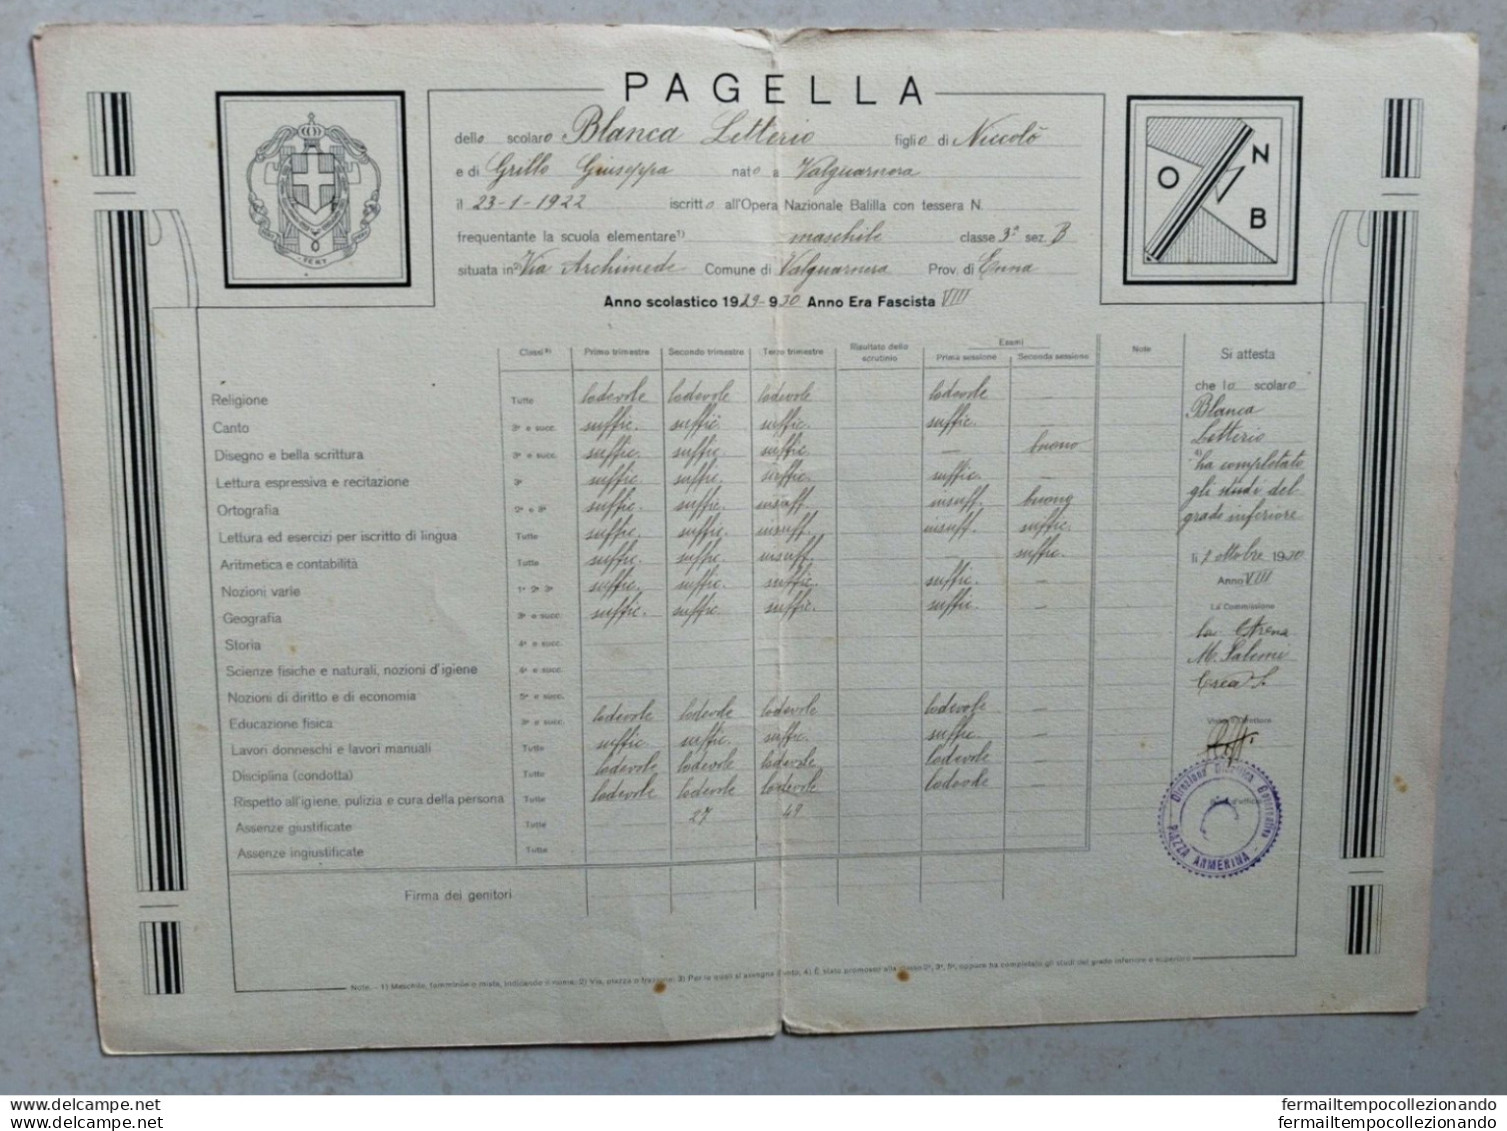 PAGELLA
dello scolaro Blanca Letterio figlio di Niccolò
e di Grillo Giuseppa nato a Valguarnera
il 23-1-1922 iscritto all'Opera Nazionale Balilla con tessera N.
frequentante la scuola elementare 1) maschile classe 3ª sez. B
situata in 2) Via Archimede Comune di Valguarnera Prov. di Enna
Anno scolastico 1929-930 Anno Era Fascista VIII
FERT
O N B
Classi Primo trimestre Secondo trimestre Terzo trimestre Risultato dello scrutinio Esami Prima sessione Seconda sessione Note
Religione Tutte lodevole lodevole lodevole lodevole
Canto 3ª e succ. suffic. suffic. suffic. suffic.
Disegno e bella scrittura 3ª e succ. suffic. suffic. suffic. — buono
Lettura espressiva e recitazione 3ª suffic. suffic. suffic. suffic. —
Ortografia 2ª e 3ª suffic. suffic. insuff. insuff. buono
Lettura ed esercizi per iscritto di lingua Tutte suffic. suffic. insuff. insuff. suffic.
Aritmetica e contabilità Tutte suffic. suffic. insuff. — suffic.
Nozioni varie 1ª 2ª 3ª suffic. suffic. suffic. suffic. —
Geografia 3ª e succ. suffic. suffic. suffic. suffic. —
Storia 4ª e succ.
Scienze fisiche e naturali, nozioni d'igiene 4ª e succ.
Nozioni di diritto e di economia 5ª e succ.
Educazione fisica 3ª e succ. lodevole lodevole lodevole lodevole —
Lavori donneschi e lavori manuali Tutte suffic. suffic. suffic. suffic. —
Disciplina (condotta) Tutte lodevole lodevole lodevole lodevole —
Rispetto all'igiene, pulizia e cura della persona Tutte lodevole lodevole lodevole lodevole —
Assenze giustificate Tutte 27 49
Assenze ingiustificate Tutte
Firma dei genitori
Si attesta
che lo scolaro
Blanca
Letterio
4) ha completato
gli studi del
grado inferiore
lì 1 ottobre 1930
Anno VIII
La Commissione
M. Salemi
Direzione Didattica Governativa
PIAZZA ARMERINA
Note. - 1) Maschile, femminile o mista, indicando il nome; 2) Via, piazza o frazione; 3) Per le quali si assegna il voto; 4) È stato promosso alla classe 2ª, 3ª, 5ª, oppure ha completato gli studi del grado inferiore o superiore
fermailtempocollezionando.com
fermailtempocollezionando.com
fermailtempocollezionando
fermailtempocollezionando